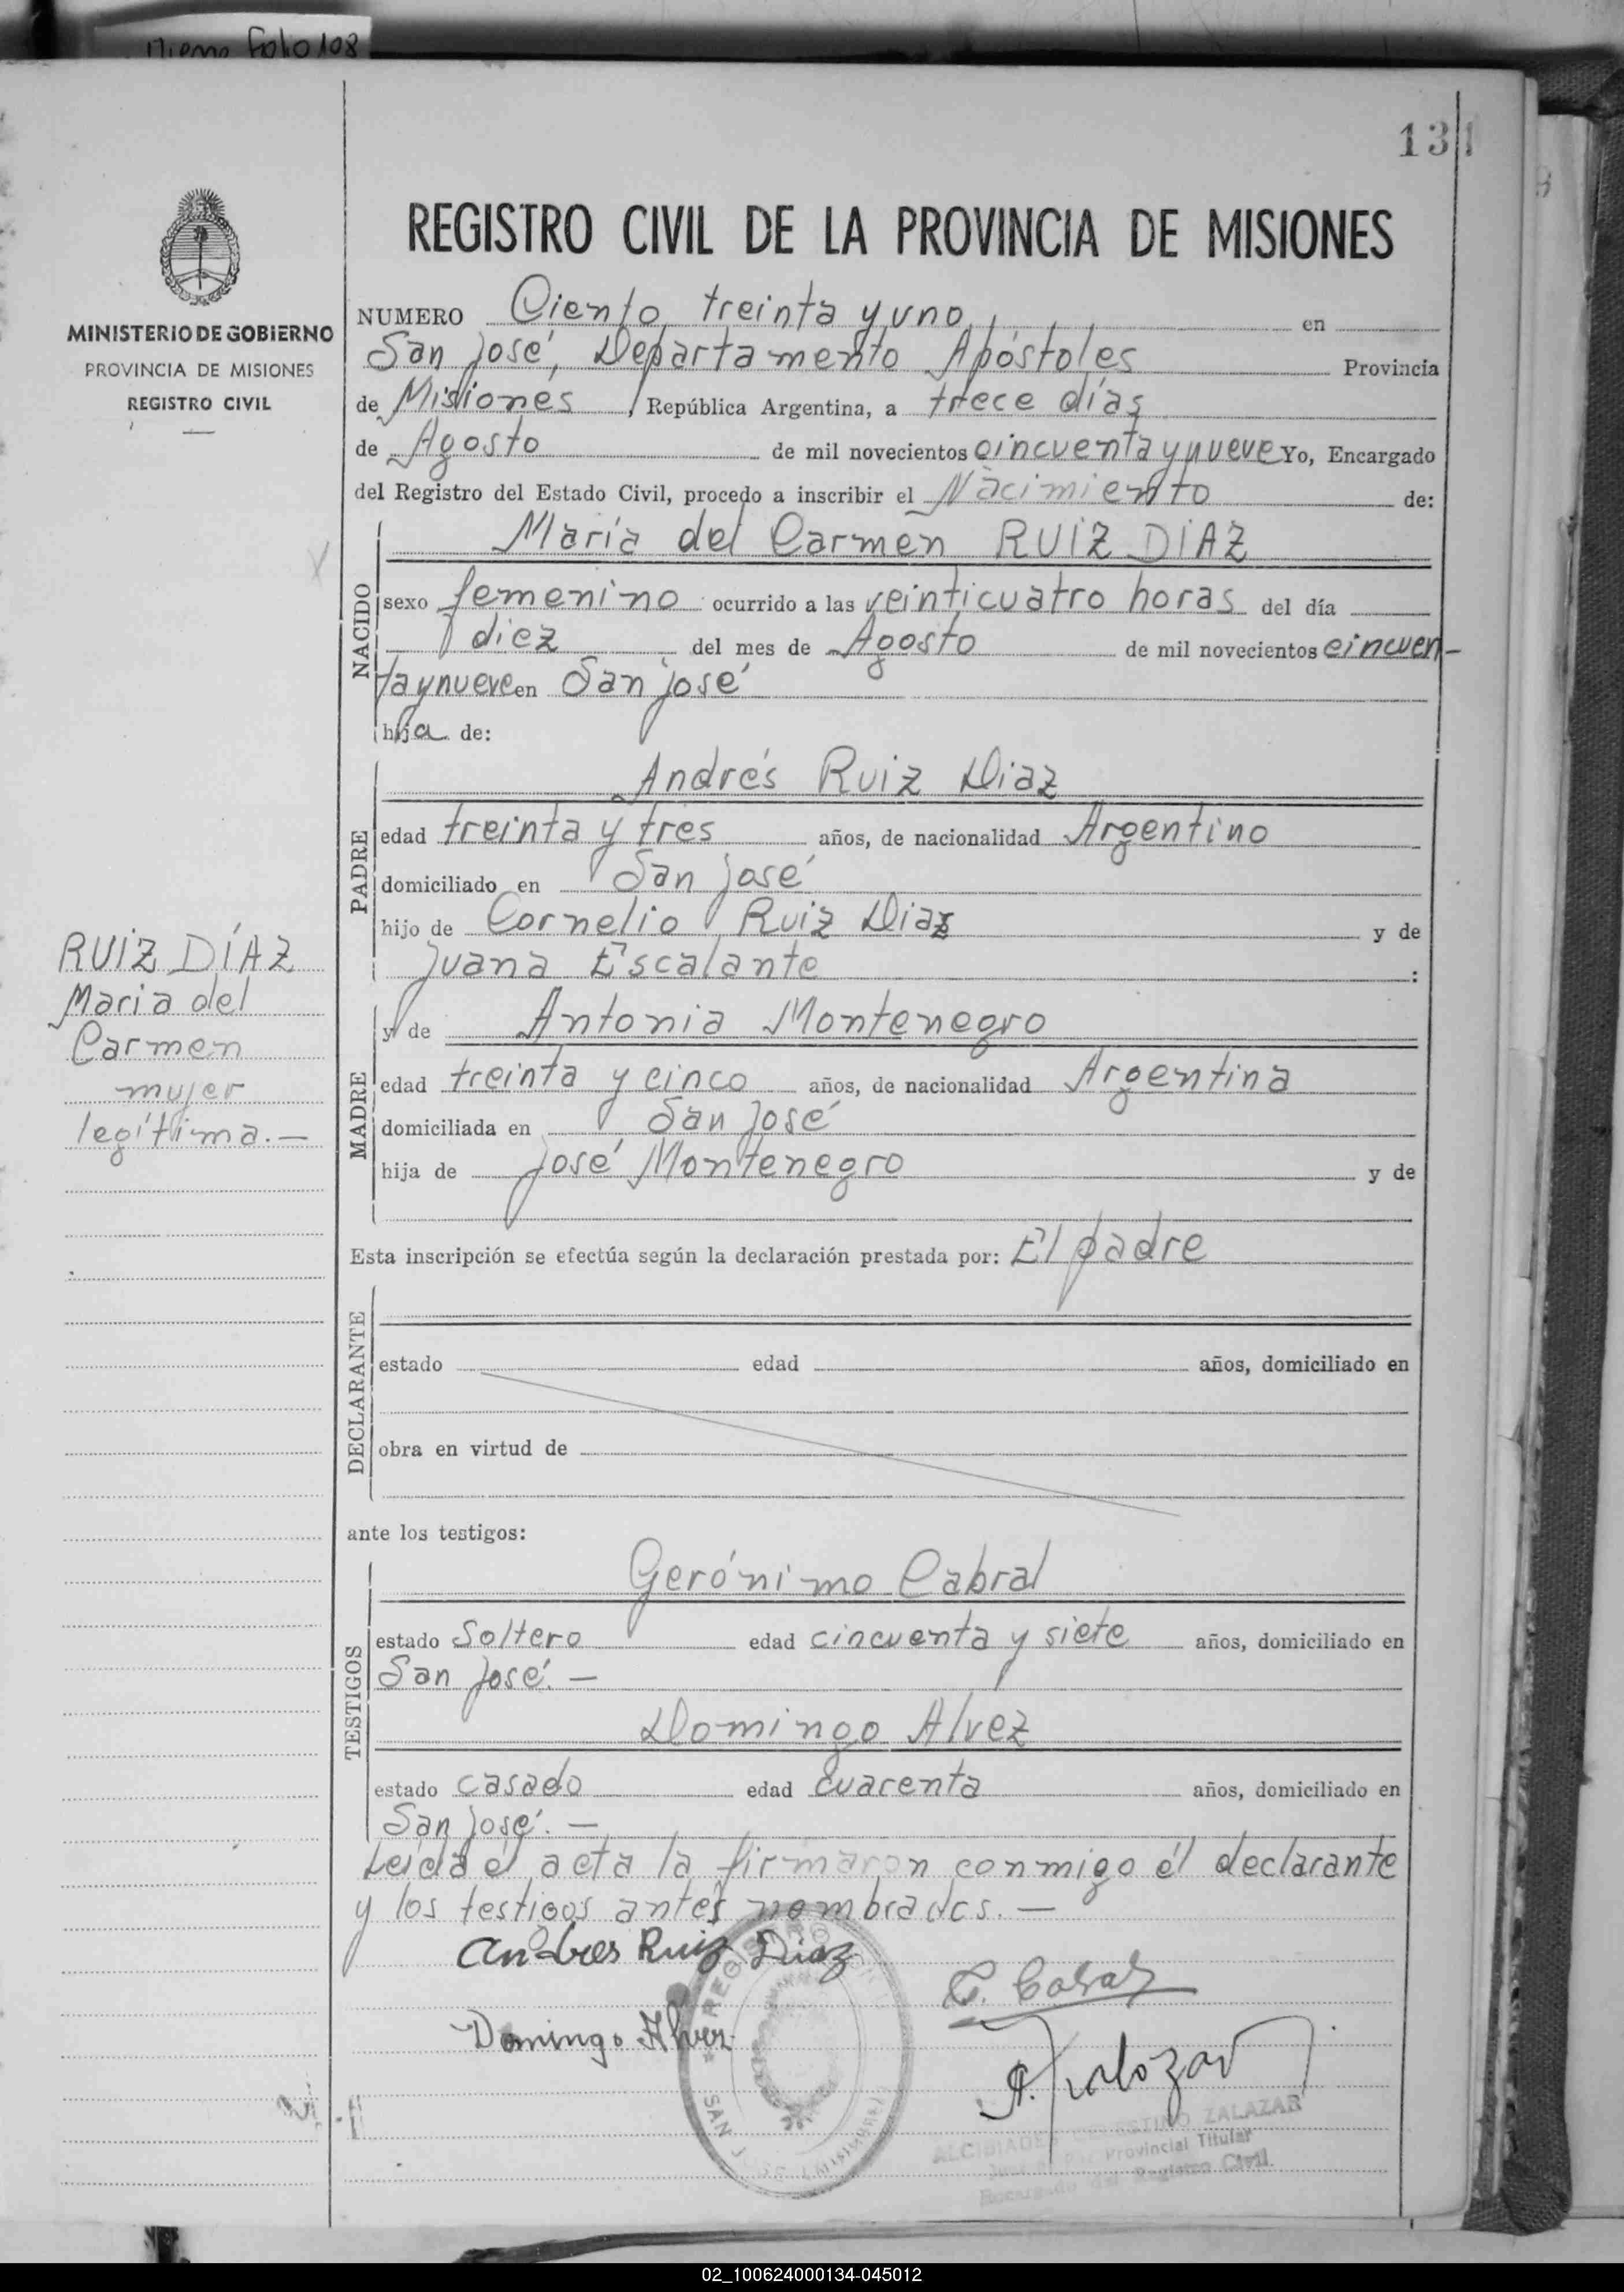 Folio 108
131
REGISTRO CIVIL DE LA PROVINCIA DE MISIONES
MINISTERIO DE GOBIERNO
PROVINCIA DE MISIONES
REGISTRO CIVIL
NUMERO Ciento treinta y uno, en
San José, Departamento Apóstoles Provincia
de Misiones, República Argentina, a trece días
de Agosto de mil novecientos cincuenta y nueve Yo, Encargado
del Registro del Estado Civil, procedo a inscribir el Nacimiento de:
NACIDO
María del Carmen RUIZ DIAZ
sexo femenino ocurrido a las veinticuatro horas del día
diez del mes de Agosto de mil novecientos cincuen-
ta y nueve en San José
hija de:
PADRE
Andrés Ruiz Diaz
edad treinta y tres años, de nacionalidad Argentino
domiciliado en San José
hijo de Cornelio Ruiz Diaz y de
Juana Escalante :
RUIZ DÍAZ
Maria del
Carmen
mujer
legítima.—
MADRE
y de Antonia Montenegro
edad treinta y cinco años, de nacionalidad Argentina
domiciliada en San José
hija de José Montenegro y de
Esta inscripción se efectúa según la declaración prestada por: El padre
DECLARANTE
estado edad años, domiciliado en
obra en virtud de
ante los testigos:
TESTIGOS
Gerónimo Cabral
estado Soltero edad cincuenta y siete años, domiciliado en
San José.—
Domingo Alvez
estado casado edad cuarenta años, domiciliado en
San José.—
Leída el acta la firmaron conmigo él declarante
y los testigos antes nombrados.—
Andres Ruiz Diaz
G. Cabral
Domingo Alvez
REGISTRO
SAN JOSE (MISIONES)
ALCIBIADES CELESTINO ZALAZAR
Juez de Paz Provincial Titular
Encargado del Registro Civil
02_100624000134-045012